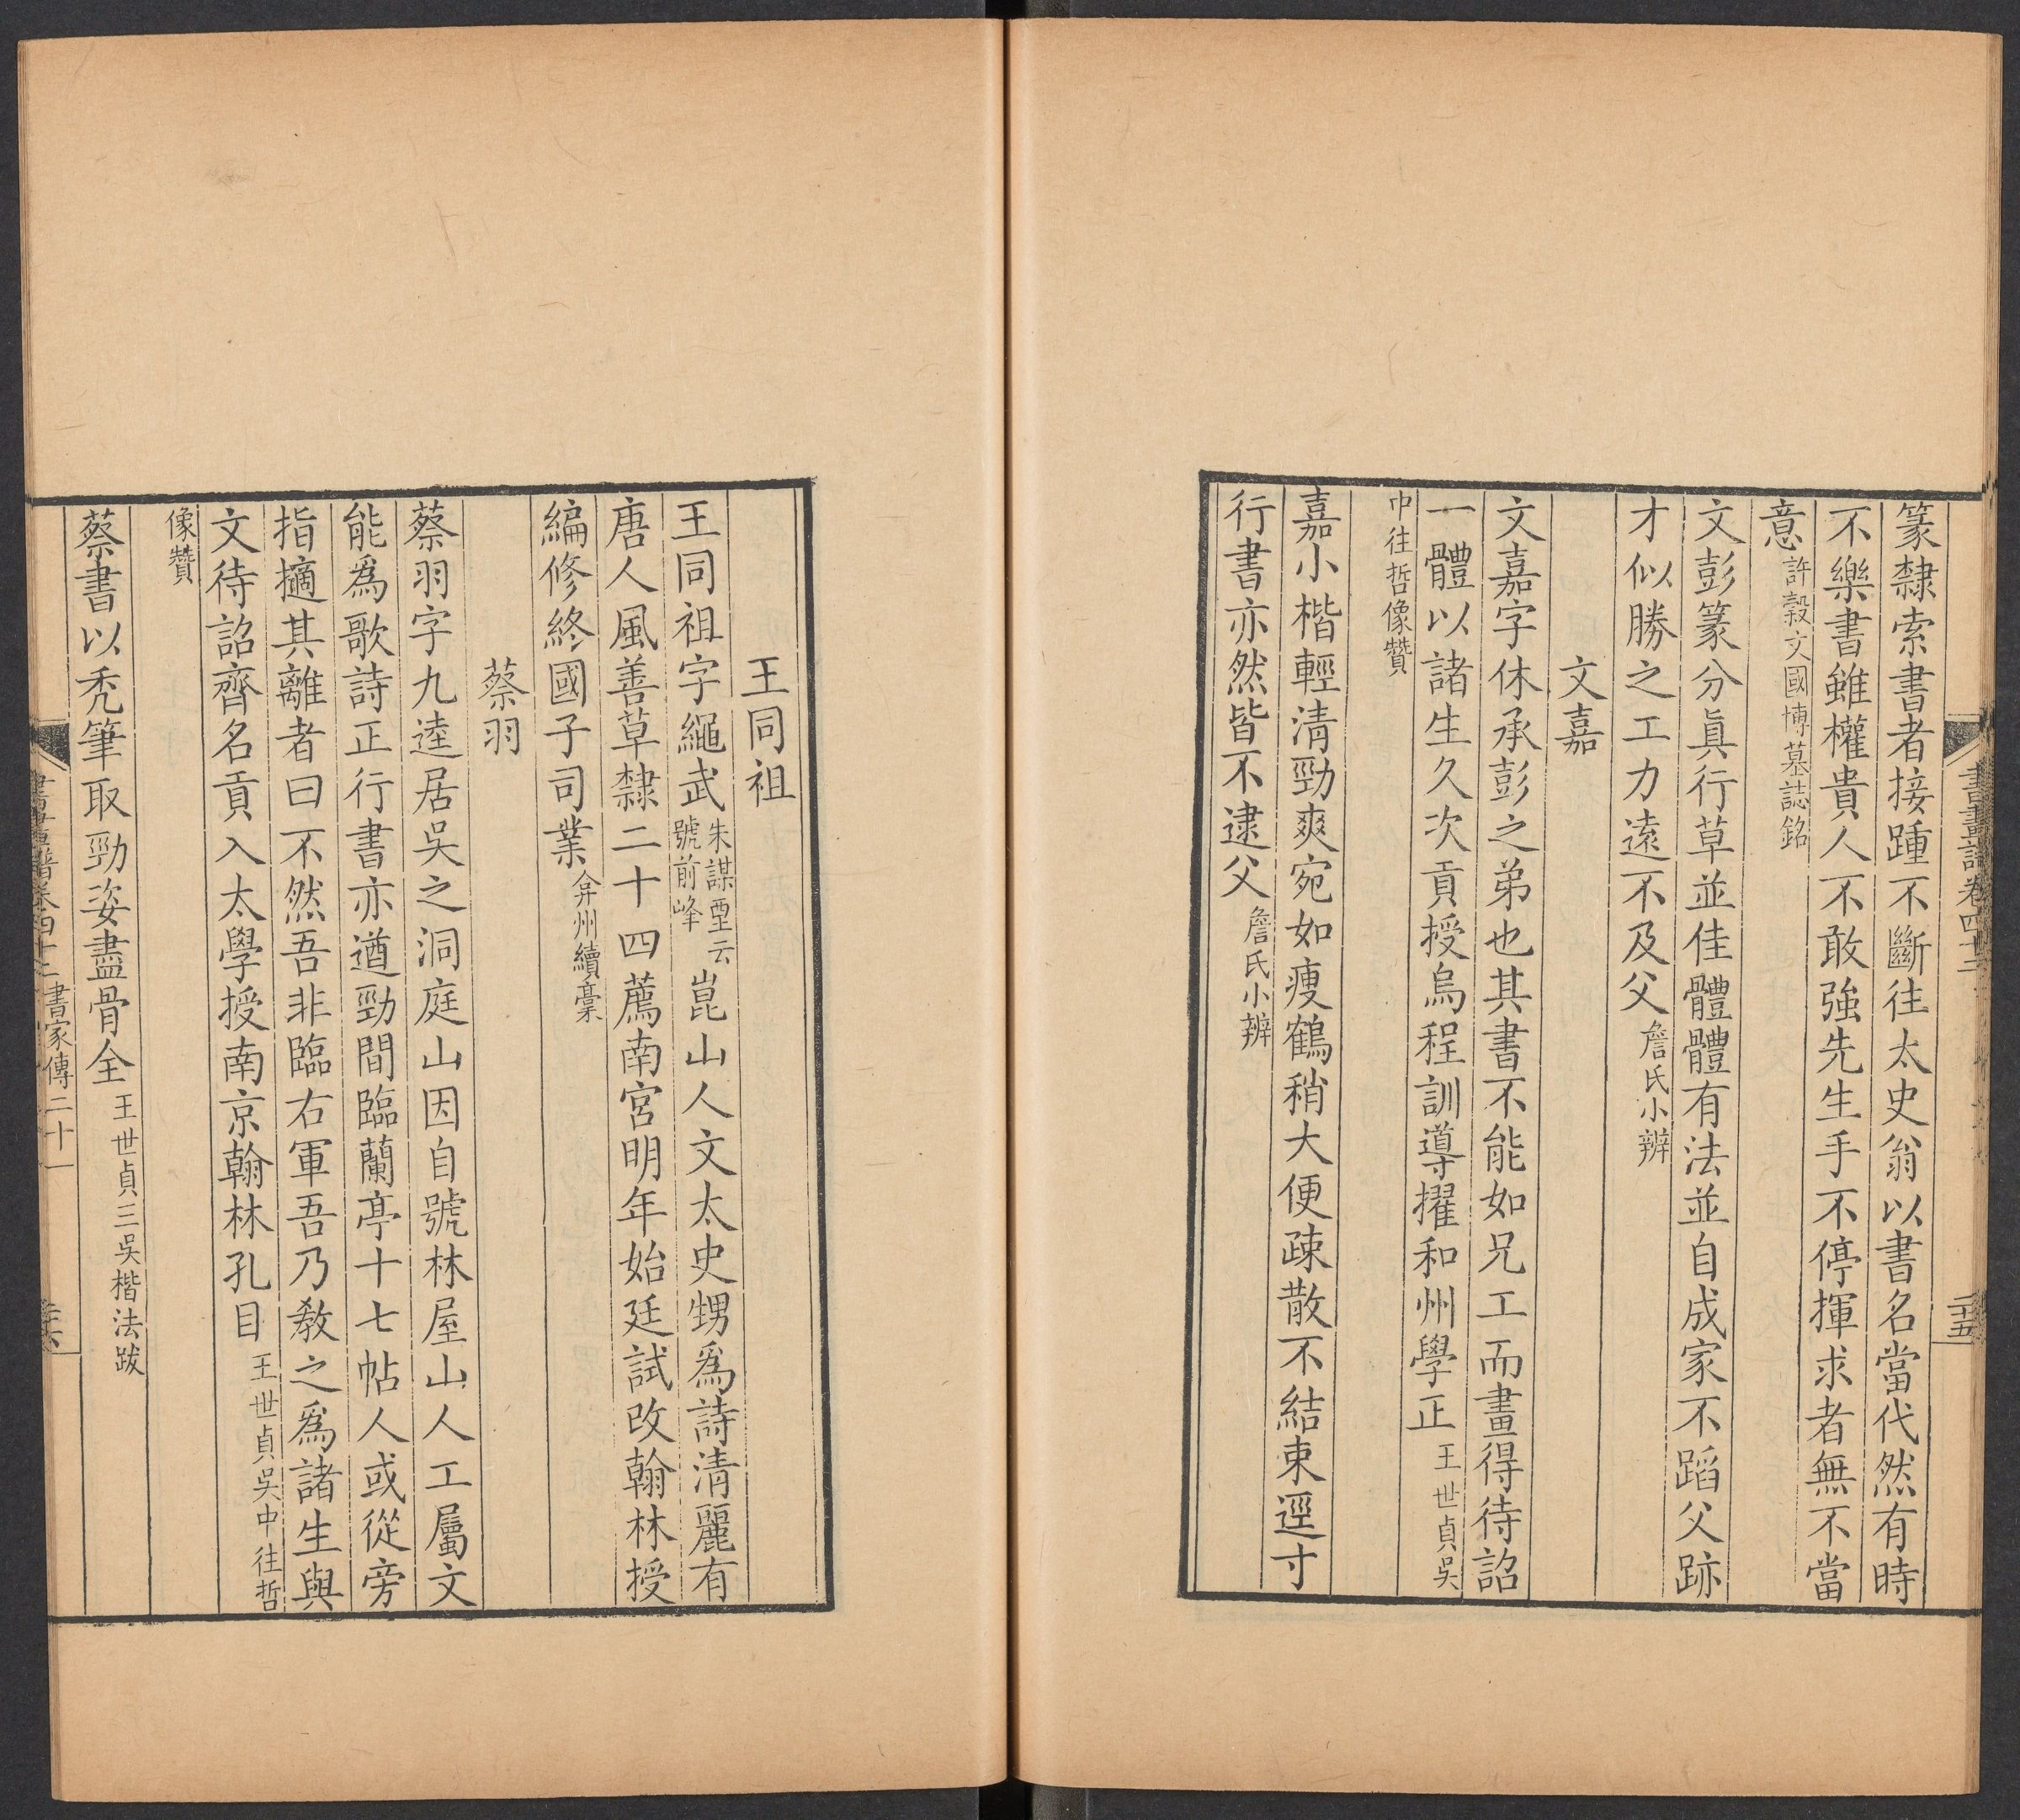 篆隸索書者接踵不斷往太史翁以書名當代然有時
不樂書雖權貴人不敢強先生手不停揮求者無不當
意許穀文國博墓誌銘
文彭篆分眞行草並佳體體有法並自成家不蹈父跡
才似勝之工力遠不及父詹氏小辨
文嘉
文嘉字休承彭之弟也其書不能如兄工而畫得待詔
一體以諸生久次貢授烏程訓導擢和州學正王世貞吳
中往哲像贊
嘉小楷輕清勁爽宛如瘦鶴稍大便疎散不結束逕寸
行書亦然皆不逮父詹氏小辨
王同祖
王同祖字繩武朱謀垔云號前峰崑山人文太史甥爲詩清麗有
唐人風善草隸二十四薦南宮明年始廷試改翰林授
編修終國子司業弇州續稾
蔡羽
蔡羽字九逵居吳之洞庭山因自號林屋山人工屬文
能爲歌詩正行書亦遒勁間臨蘭亭十七帖人或從旁
指擿其離者曰不然吾非臨右軍吾乃教之爲諸生與
文待詔齊名貢入太學授南京翰林孔目王世貞吳中往哲
像贊
蔡書以秃筆取勁姿盡骨全王世貞三吳楷法跋
書畫譜卷四十二書家傳二十一